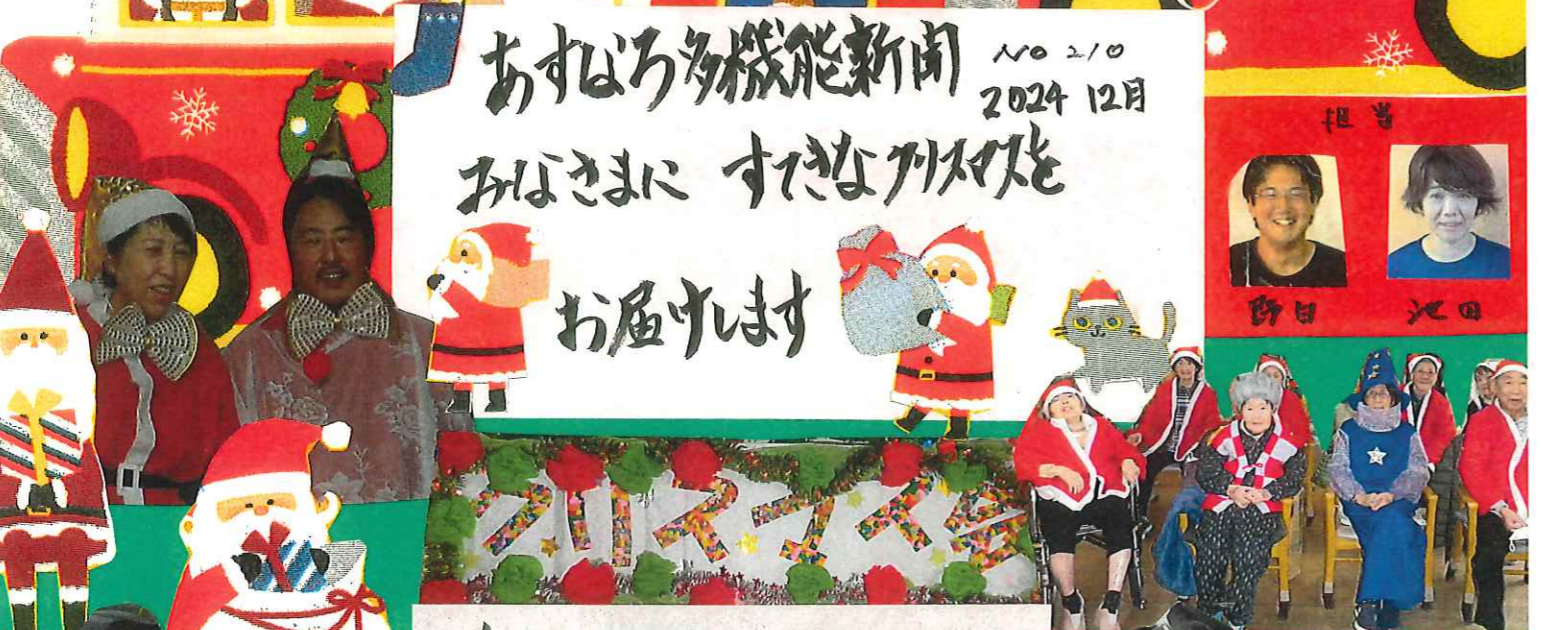 あすなろ多機能新聞
No 210
2024 12月
みなさまに すてきなクリスマスを
お届けします
担当
野田 池田
クリスマス会